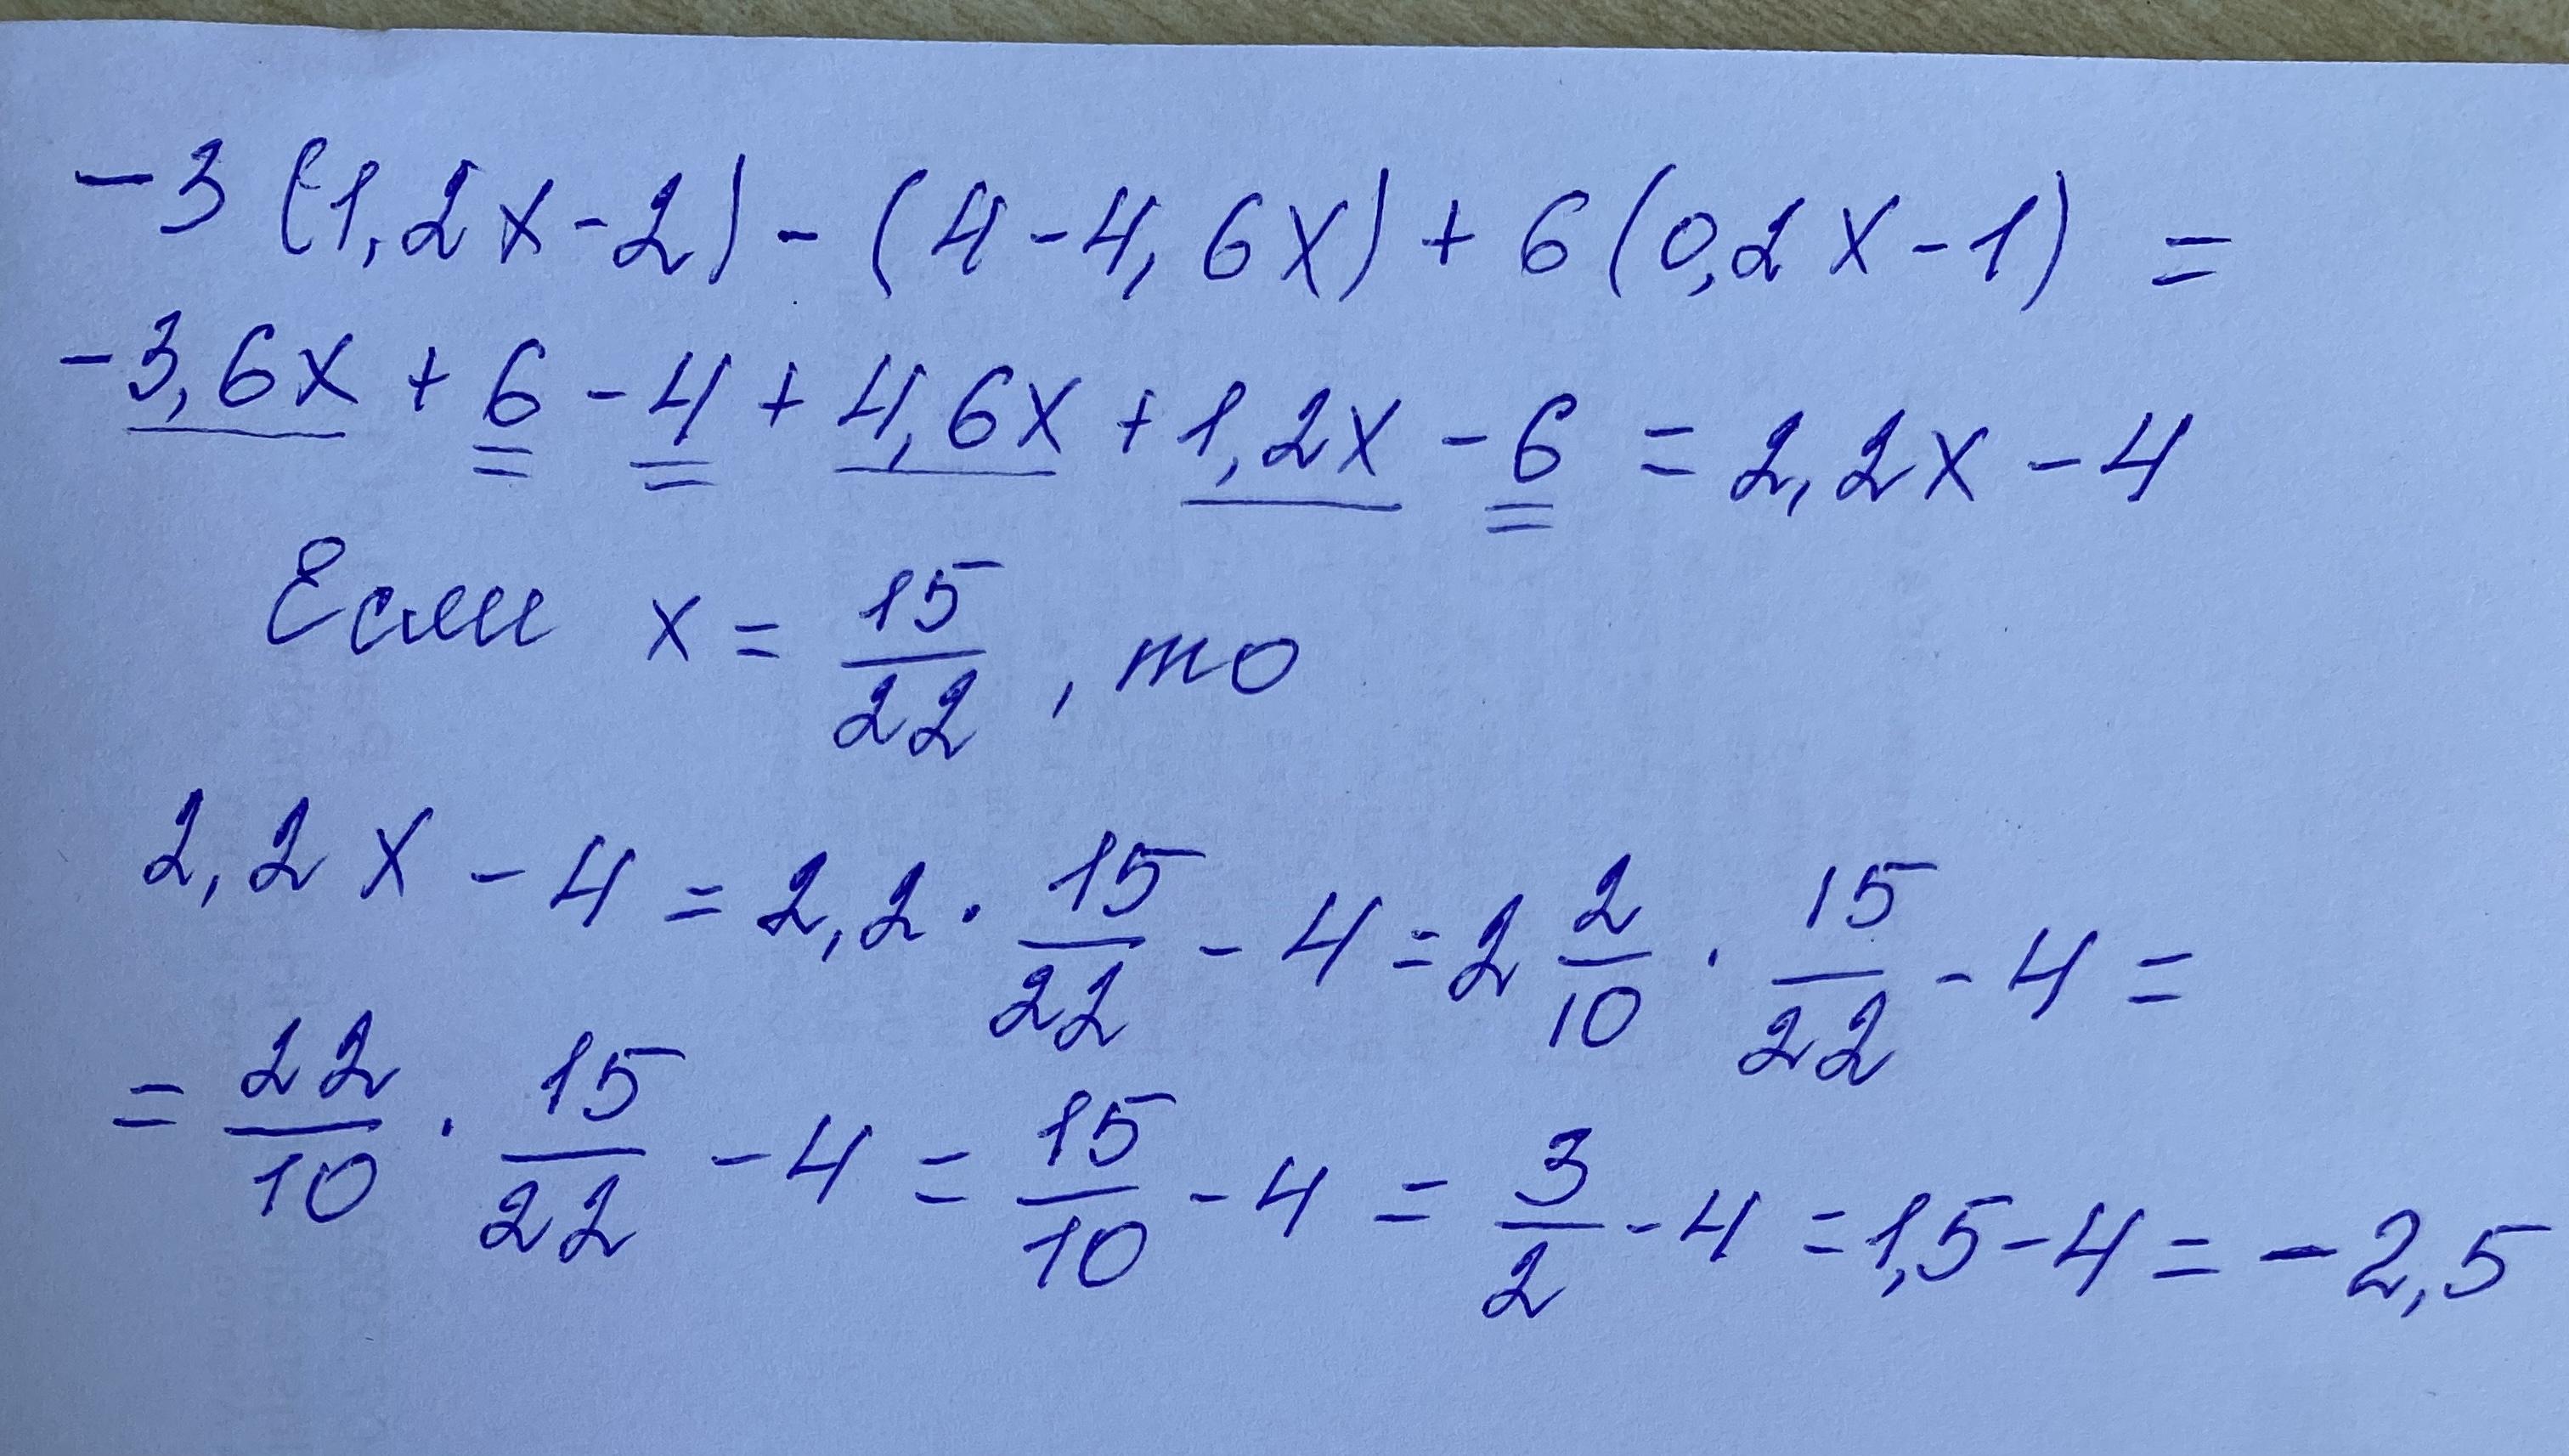 -3 (1,2x-2) - (4-4,6x) + 6 (0,2x-1) =
-3,6x + 6 - 4 + 4,6x + 1,2x - 6 = 2,2x - 4
Если x = 15/22, то
2,2x - 4 = 2,2 · 15/22 - 4 = 2 2/10 · 15/22 - 4 =
= 22/10 · 15/22 - 4 = 15/10 - 4 = 3/2 - 4 = 1,5 - 4 = - 2,5